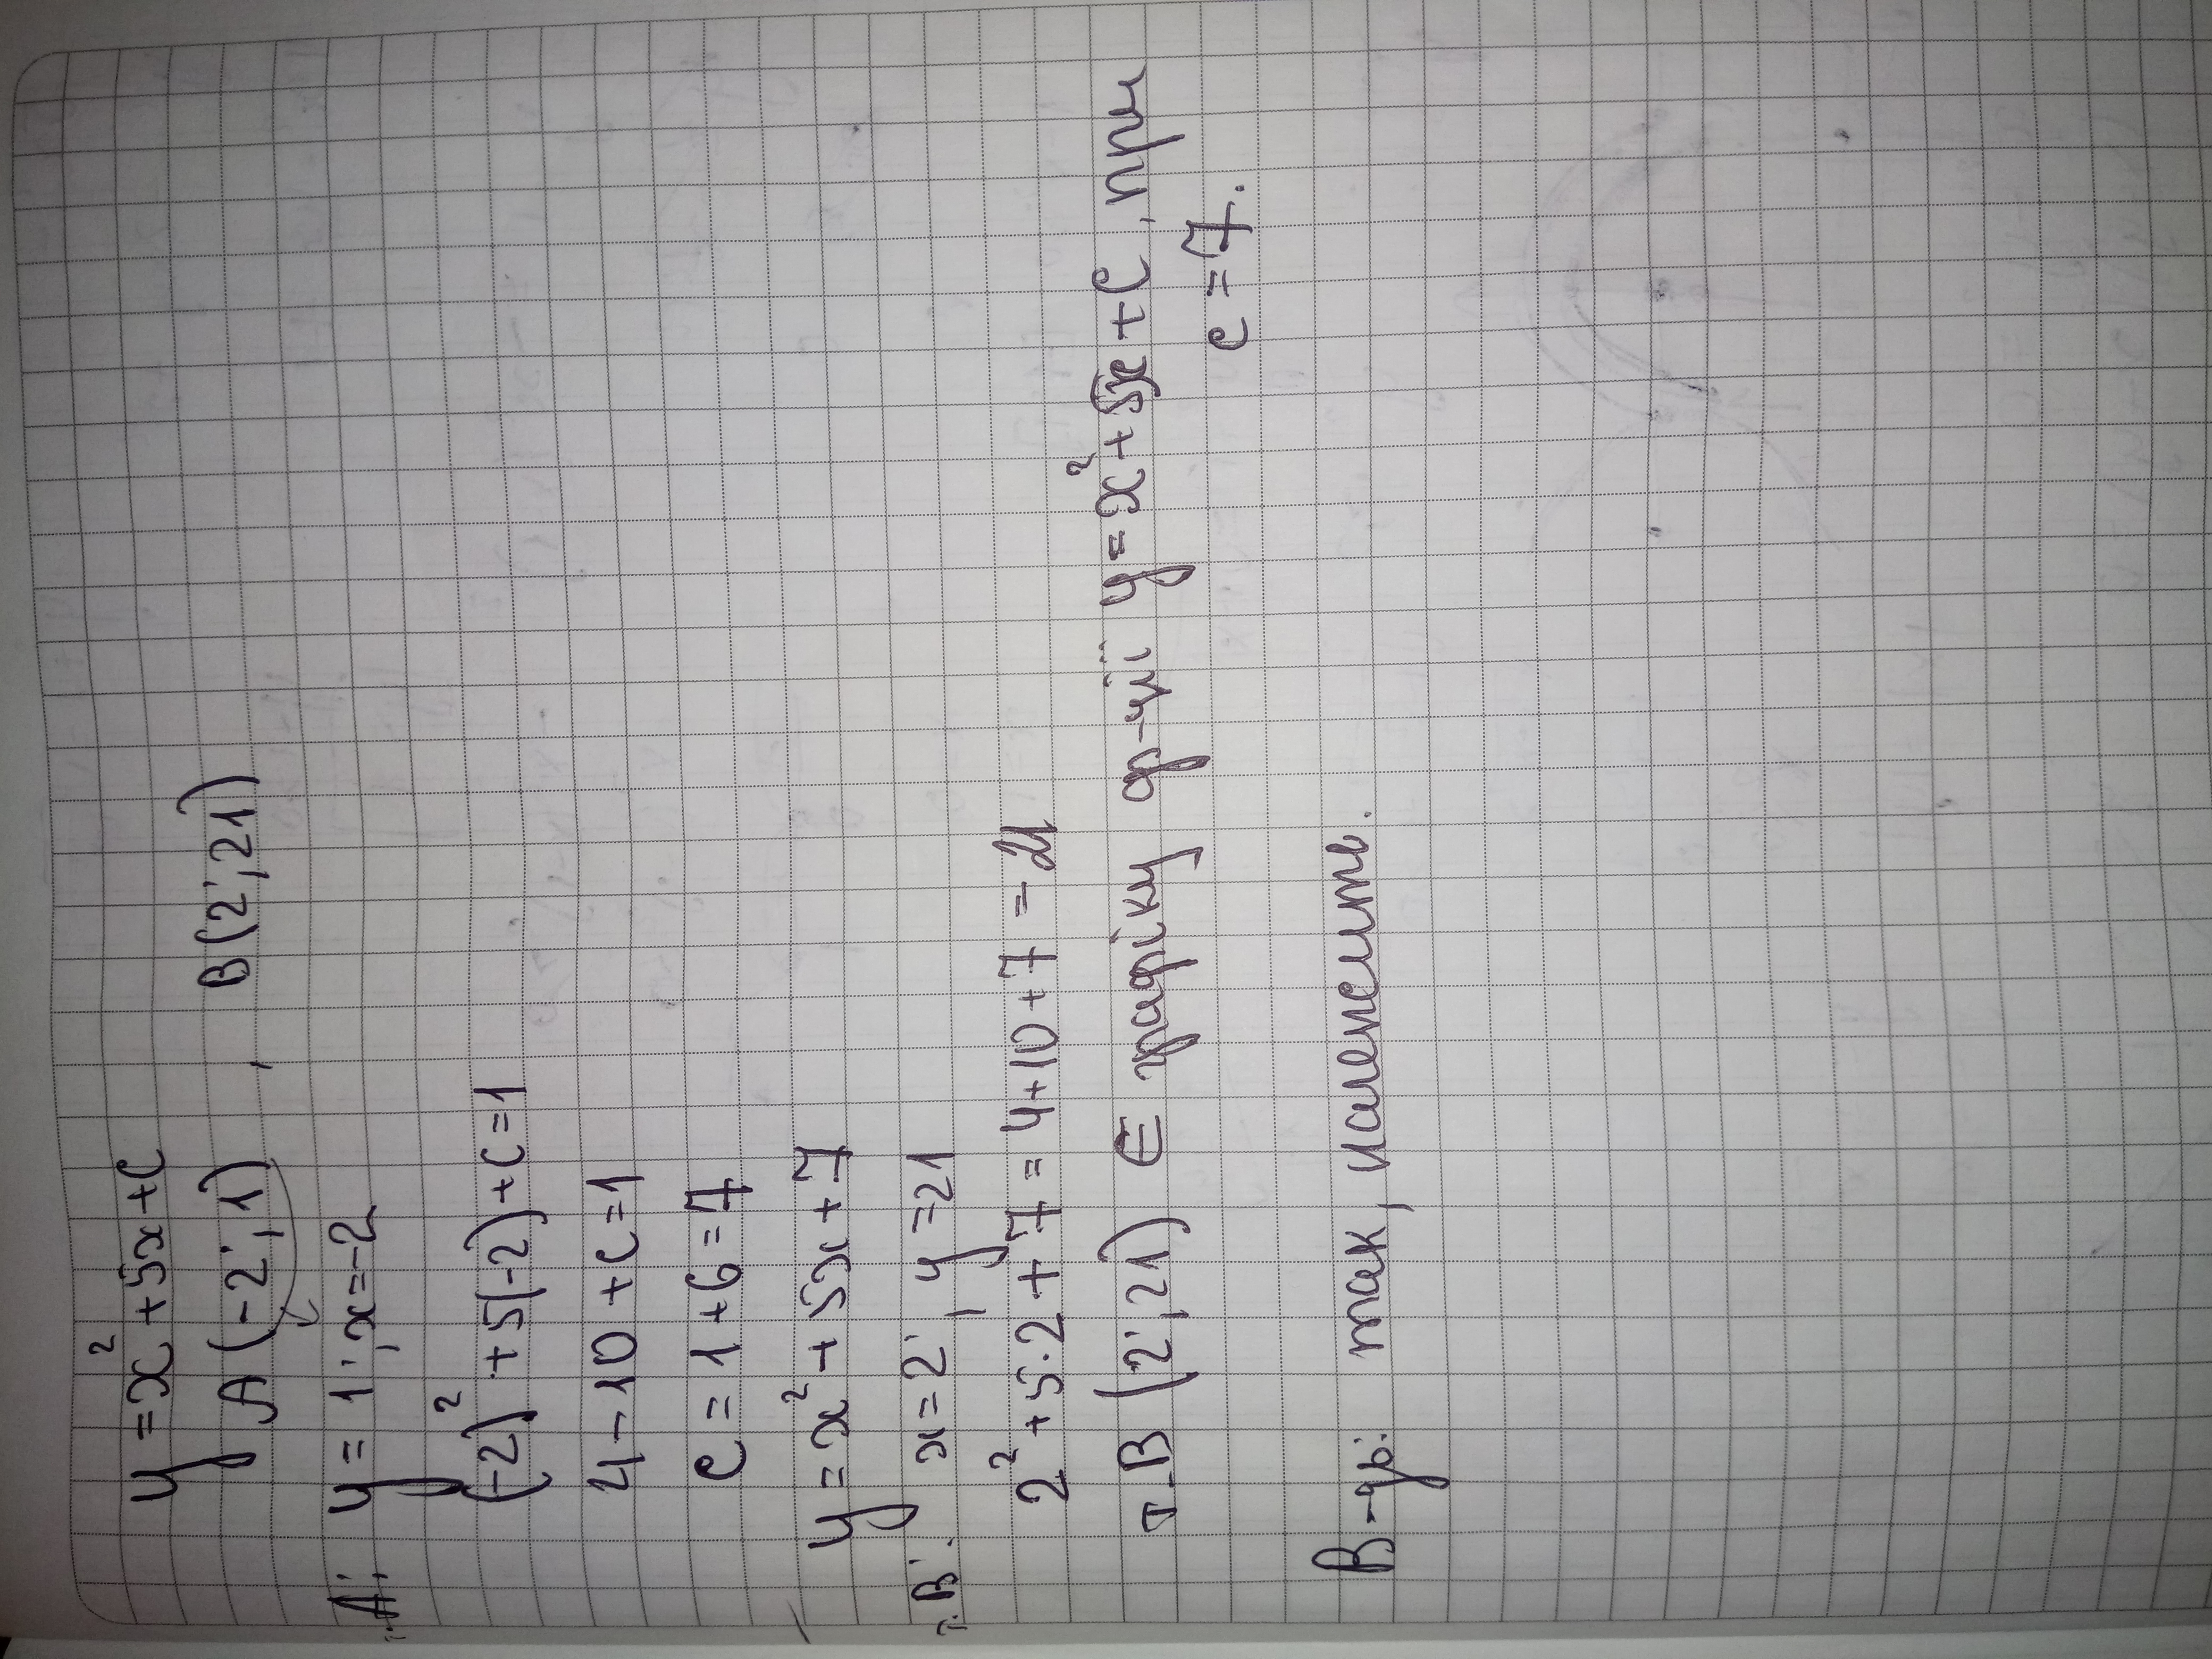 y = x² + 5x + C
A (-2; 1) , B(2; 21)
т. A: y = 1; x = -2
(-2)² + 5(-2) + C = 1
4 - 10 + C = 1
C = 1 + 6 = 7
y = x² + 5x + 7
т. B: x = 2; y = 21
2² + 5·2 + 7 = 4 + 10 + 7 = 21
т. B (2; 21) ∈ графіку ф-ції y = x² + 5x + C, при
c = 7.
В-дь: так, належить.